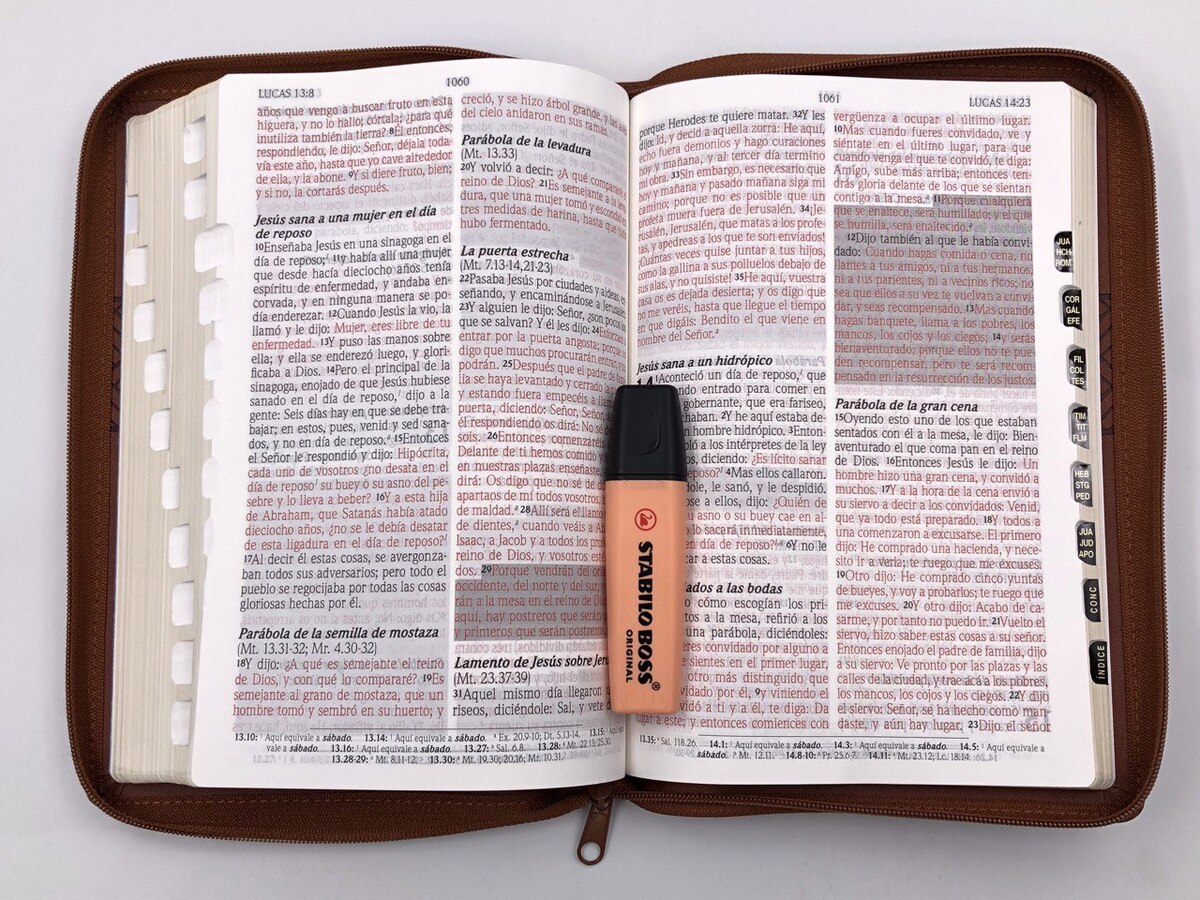 LUCAS 13:8
1060
años que vengo a buscar fruto en esta
higuera, y no lo hallo; córtala; ¿para qué
inutiliza también la tierra? 8Él entonces,
respondiendo, le dijo: Señor, déjala toda-
vía este año, hasta que yo cave alrededor
de ella, y la abone. 9Y si diere fruto, bien;
y si no, la cortarás después.
Jesús sana a una mujer en el día
de reposo
10Enseñaba Jesús en una sinagoga en el
día de reposo; y había allí una mujer
que desde hacía dieciocho años tenía
espíritu de enfermedad, y andaba en-
corvada, y en ninguna manera se po-
día enderezar. 12Cuando Jesús la vio, la
llamó y le dijo: Mujer, eres libre de tu
enfermedad. 13Y puso las manos sobre
ella; y ella se enderezó luego, y glorifi-
caba a Dios. 14Pero el principal de la
sinagoga, enojado de que Jesús hubiese
sanado en el día de reposo, dijo a la
gente: Seis días hay en que se debe tra-
bajar; en estos, pues, venid y sed sana-
dos, y no en día de reposo. 15Entonces
el Señor le respondió y dijo: Hipócrita,
cada uno de vosotros ¿no desata en el
día de reposo su buey o su asno del pe-
sebre y lo lleva a beber? 16Y a esta hija
de Abraham, que Satanás había atado
dieciocho años, ¿no se le debía desatar
de esta ligadura en el día de reposo?
17Al decir él estas cosas, se avergonza-
ban todos sus adversarios; pero todo el
pueblo se regocijaba por todas las cosas
gloriosas hechas por él.
Parábola de la semilla de mostaza
(Mt. 13.31-32; Mr. 4.30-32)
18Y dijo: ¿A qué es semejante el reino
de Dios, y con qué lo compararé? 19Es
semejante al grano de mostaza, que un
hombre tomó y sembró en su huerto; y
creció, y se hizo árbol grande, y las aves
del cielo anidaron en sus ramas.
Parábola de la levadura
(Mt. 13.33)
20Y volvió a decir: ¿A qué compararé el
reino de Dios? 21Es semejante a la leva-
dura, que una mujer tomó y escondió en
tres medidas de harina, hasta que todo
hubo fermentado.
La puerta estrecha
(Mt. 7.13-14,21-23)
22Pasaba Jesús por ciudades y aldeas, en-
señando, y encaminándose a Jerusalén.
23Y alguien le dijo: Señor, ¿son pocos los
que se salvan? Y él les dijo: 24
entrar por la puerta angosta; porque os
digo que muchos procurarán entrar,
podrán. 25Después que el padre de
lia se haya levantado y cerrado la
y estando fuera empecéis a
puerta, diciendo: Señor, Señor,
él respondiendo os dirá: No sé
sois. 26Entonces comenzaréis
Delante de ti hemos comido y
en nuestras plazas enseñaste.
dirá: Os digo que no sé de
apartaos de mí todos vosotros,
de maldad. 28Allí será el llanto
de dientes, cuando veáis a Abr
Isaac, a Jacob y a todos los
reino de Dios, y vosotros
dos. 29Porque vendrán del
occidente, del norte y del sur,
rán a la mesa en el reino de Dios
aquí, hay postreros que serán
y primeros que serán postreros
Lamento de Jesús sobre Jeru
(Mt. 23.37-39)
31Aquel mismo día llegaron
riseos, diciéndole: Sal, y vete
13.10: Aquí equivale a sábado. 13.14: Aquí equivale a sábado. Ex. 20.9-10; Dt. 5.13-14. 13.15: Aquí equi-
vale a sábado. 13.16: Aquí equivale a sábado. 13.27: Sal. 6.8. 13.28: Mt. 22.13; 25.30.
13.28-29: Mt. 8.11-12. 13.30: Mt. 19.30; 20.16; Mr. 10.31.
1061
LUCAS 14:23
porque Herodes te quiere matar. 32Y les
dijo: Id, y decid a aquella zorra: He aquí,
echo fuera demonios y hago curaciones
hoy y mañana, y al tercer día termino
mi obra. 33Sin embargo, es necesario que
hoy y mañana y pasado mañana siga mi
camino; porque no es posible que un
profeta muera fuera de Jerusalén. 34¡Je-
rusalén, Jerusalén, que matas a los profe-
tas, y apedreas a los que te son enviados!
¡Cuántas veces quise juntar a tus hijos,
como la gallina a sus polluelos debajo de
sus alas, y no quisiste! 35He aquí, vuestra
casa os es dejada desierta; y os digo que
no me veréis, hasta que llegue el tiempo
en que digáis: Bendito el que viene en
nombre del Señor.
Jesús sana a un hidrópico
14 Aconteció un día de reposo, que
habiendo entrado para comer en
gobernante, que era fariseo,
chaban. 2Y he aquí estaba de-
hombre hidrópico. 3Enton-
bló a los intérpretes de la ley
os, diciendo: ¿Es lícito sanar
reposo? 4Mas ellos callaron.
dole, le sanó, y le despidió.
se a ellos, dijo: ¿Quién de
asno o su buey cae en al-
lo sacará inmediatamente,
en día de reposo? 6Y no le
a estas cosas.
dados a las bodas
cómo escogían los pri-
tos a la mesa, refirió a los
una parábola, diciéndoles:
res convidado por alguno a
te sientes en el primer lugar,
otro más distinguido que
vidado por él, 9y viniendo el
vidó a ti y a él, te diga: Da
lugar a este; y entonces comiences con
vergüenza a ocupar el último lugar.
10Mas cuando fueres convidado, ve y
siéntate en el último lugar, para que
cuando venga el que te convidó, te diga:
Amigo, sube más arriba; entonces ten-
drás gloria delante de los que se sientan
contigo a la mesa. 11Porque cualquiera
que se enaltece, será humillado; y el que
se humilla, será enaltecido.
12Dijo también al que le había convi-
dado: Cuando hagas comida o cena, no
llames a tus amigos, ni a tus hermanos,
ni a tus parientes, ni a vecinos ricos; no
sea que ellos a su vez te vuelvan a convi-
dar, y seas recompensado. 13Mas cuando
hagas banquete, llama a los pobres, los
mancos, los cojos y los ciegos; 14y serás
bienaventurado; porque ellos no te pue-
den recompensar, pero te será recom-
pensado en la resurrección de los justos.
Parábola de la gran cena
15Oyendo esto uno de los que estaban
sentados con él a la mesa, le dijo: Bien-
aventurado el que coma pan en el reino
de Dios. 16Entonces Jesús le dijo: Un
hombre hizo una gran cena, y convidó a
muchos. 17Y a la hora de la cena envió a
su siervo a decir a los convidados: Venid,
que ya todo está preparado. 18Y todos a
una comenzaron a excusarse. El primero
dijo: He comprado una hacienda, y nece-
sito ir a verla; te ruego que me excuses.
19Otro dijo: He comprado cinco yuntas
de bueyes, y voy a probarlos; te ruego que
me excuses. 20Y otro dijo: Acabo de ca-
sarme, y por tanto no puedo ir. 21Vuelto el
siervo, hizo saber estas cosas a su señor.
Entonces enojado el padre de familia, dijo
a su siervo: Ve pronto por las plazas y las
calles de la ciudad, y trae acá a los pobres,
los mancos, los cojos y los ciegos. 22Y dijo
el siervo: Señor, se ha hecho como man-
daste, y aún hay lugar. 23Dijo el señor
13.35: Sal. 118.26. 14.1: Aquí equivale a sábado. 14.3: Aquí equivale a sábado. 14.5: Aquí equivale a
sábado. Mt. 12.11. 14.8-10: Pr. 25.6-7. 14.11: Mt. 23.12; Lc. 18.14.
STABILO BOSS®
ORIGINAL
JUA
HCH
ROM
COR
GÁL
EFE
FIL
COL
TES
TIM
TIT
FLM
HEB
STG
PED
JUA
JUD
APO
CONC
ÍNDICE